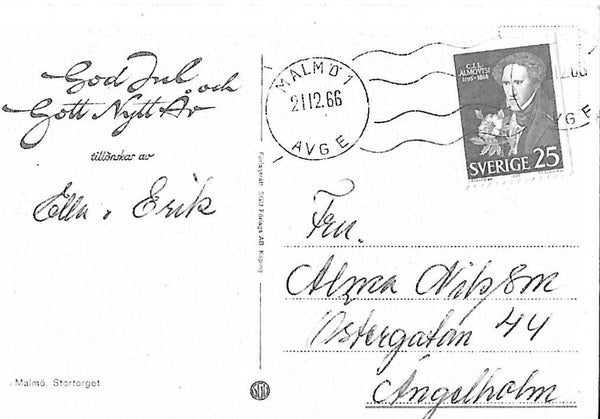 God Jul och
Gott Nytt År
tillönskar av
Ella & Erik
Malmö. Stortorget
Förlagsrätt SGU Förlags AB Köping
SGU
MALMÖ 1
21.12.66
AVG E
C.J.L.
ALMQVIST
1793-1866
SVERIGE 25
Fru.
Alma Nilsson
Östergatan 44
Ängelholm